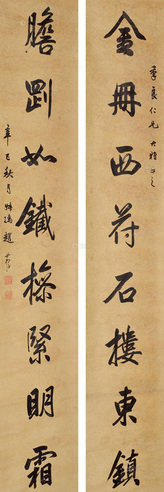 季良仁兄大雅正之
金冊西符石樓東鎮
膽剛如鐵操緊明霜
辛巳秋月
趙